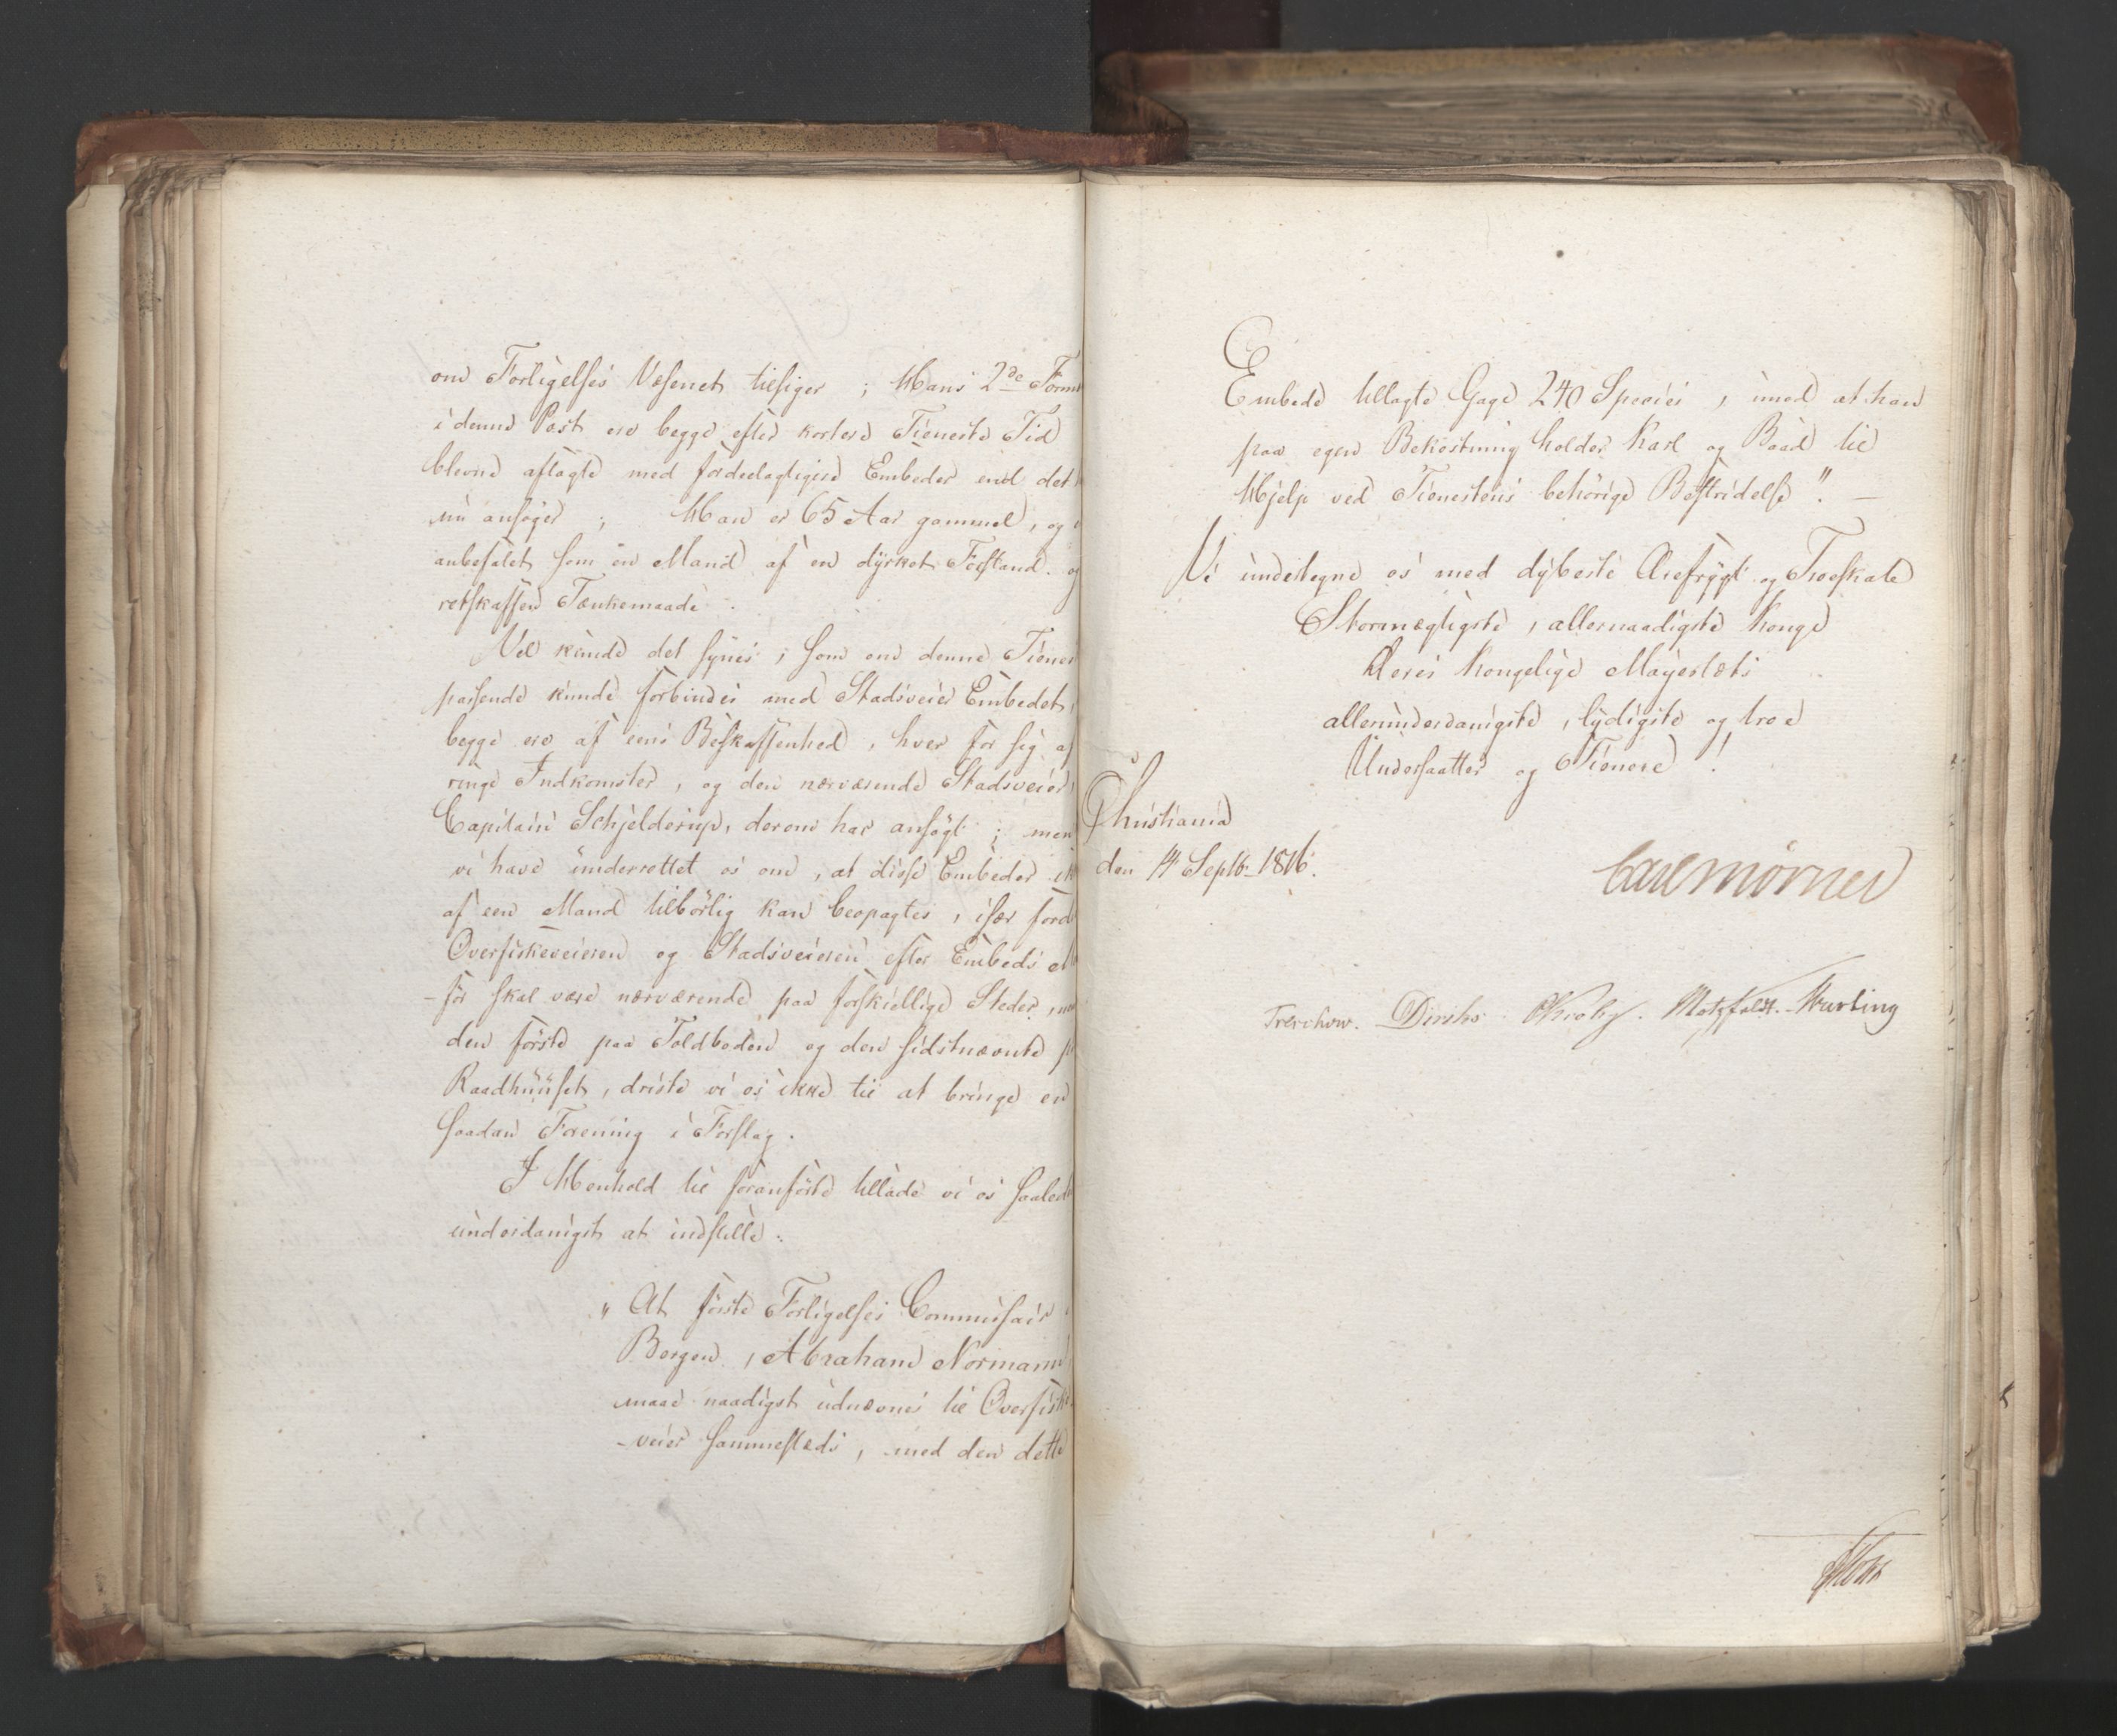 om Forligelses Væsenet tilsiger ; Hans 2de Form
i denne Post ere begge efter kortere Tieneste Tid
blevne aflagte med fordeelagtigere Embeder end det
nu ansøger ; Han er 65 Aar gammel, og
anbefalet som en Mand af en dyrket Forstand og
retskaffen Tænkemaade .
Vel kunde det synes, som om denne Tienes
passende kunde forbindes med Stadsveier Embedet,
begge ere af eens Beskaffenhed, hver for sig af
ringe Indkomster, og den nærværende Stadsveier
Capitain Schjelderup, derom har ansøgt ; men
vi have underrettet os om, at disse Embeder ik
af een Mand tilbørlig kan beopagtes, især ford
Overfiskeveieren og Stadsveieren efter Embeds
-før skal være nærværende paa forskiellige Steder,
den første paa Toldboden og den sidstnævnte p
Raadhuuset, driste vi os ikke til at bringe en
saadan Forening i Forslag.
I Henhold til foranførte tillade vi os saaled
underdanigst at indstille:
"At første Forligelses Commissair
Bergen, Abraham Normann
maae naadigst udnævnes til Overfiske
-veier sammestæds, med den dette
Embede tillagte Gage 240 Species, imod at han
paa egen Bekostning holder Karl og Baad til
Hjelp ved Tienestens behørige Bestridelse". —
Vi undertegne os med dybeste Ærefrygt og Troeskab
Stormægtigste, allernaadigste Konge
Deres Kongelige Majestæts
allerunderdanigste, lydigste og troe
Undersaatter og Tienere!
Christiania
den 14 Septbr 1816.
Carl Mörner
Treschow. Diriks Krohg. Motzfeldt. Hurting